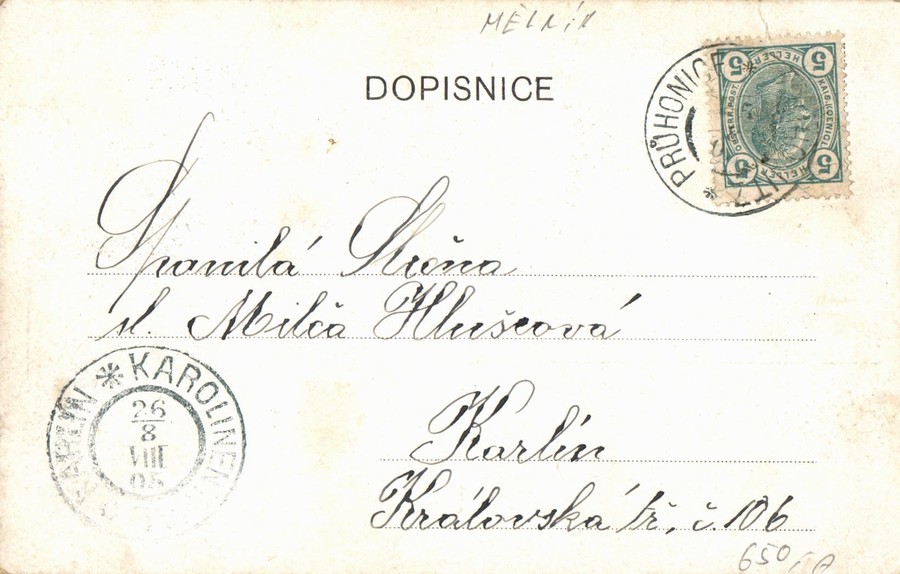 MĚLNÍK
DOPISNICE
PRŮHONICE
5 5
KAIS. KOENIGL.
OESTERR. POST.
HELLER HELLER
5 5
Spanilá Slečna
sl. Milča Hlušcová
KARLÍN * KAROLINEN
26
8
VIII
Karlín
Královská tř, č. 106
650,